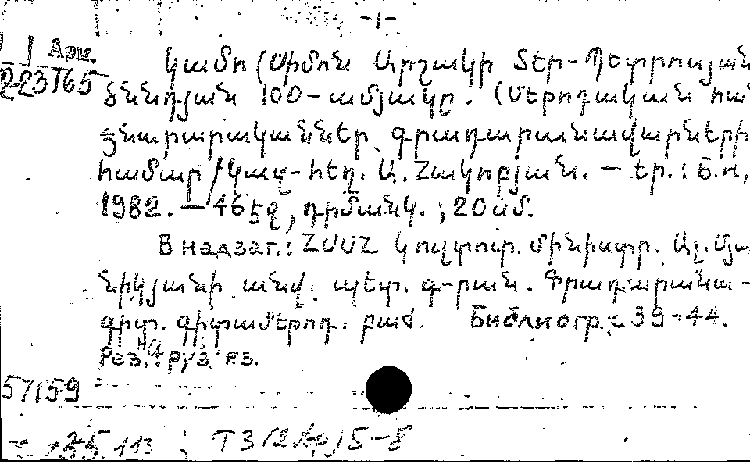 -1-
1 Арм.
223765
Կամո (Սիմոն Արշակի Տեր-Պետրոսյան
ծննդյան 100-ամյակը. (Մեթոդական հան
ձնարարականներ գրադարանավարների
համար / Կազ-հեղ. Ա. Հակոբյան. — Եր.: Б.и,
1982. — 46 էջ, դիմանկ. ; 20 սմ.
В надзаг.: ՀՍՍՀ Կուլտուր. մինիստր. Ալ. Մյ
նիկյանի անվ. պետ. գ-րան. Գրադարանա-
գիտ. գիտամեթոդ. բաժ. Библиогр.: с 39-44.
Рез.: груз. яз.
57159